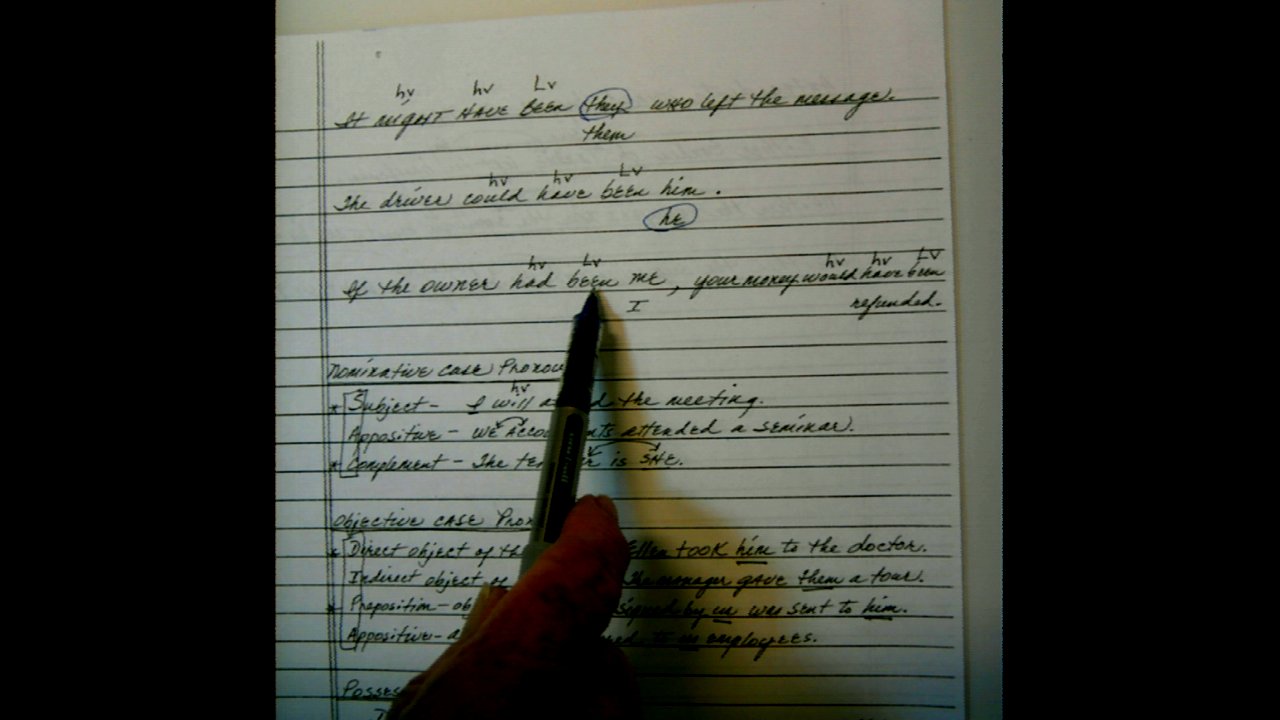 hv hv Lv
It might have been they who left the message.
them
hv hv Lv
The driver could have been him.
he
hv Lv hv hv LV
If the owner had been me, your money would have been
I refunded.
Nominative case
hv
* Subject - I will the meeting.
Appositive - we attended a seminar.
* Complement - The is SHE.
Objective case
* Direct object of Ellen took him to the doctor.
Indirect object The manager gave them a tour.
* Preposition - signed by us was sent to him.
Appositive - to us employees.